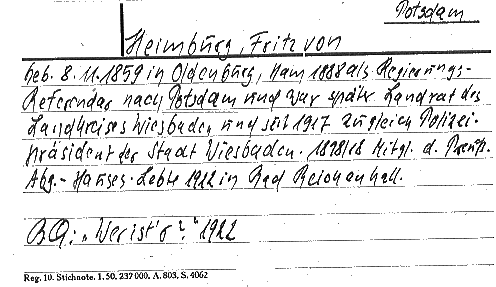 Potsdam
Heimburg, Fritz von
Geb. 8.11.1859 in Oldenburg, kam 1888 als Regierungs-
Referendar nach Potsdam und war später Landrat des
Landkreises Wiesbaden und seit 1917 zugleich Polizei-
präsident der Stadt Wiesbaden. 1898/18 Mitgl. d. Preuß.
Abg.-Hauses. Lebte 1922 in Bad Reichenhall.
BQ: „Wer ist's?" 1922
Reg. 10. Stichnote. 1. 50. 237 000. A. 803. S. 4062